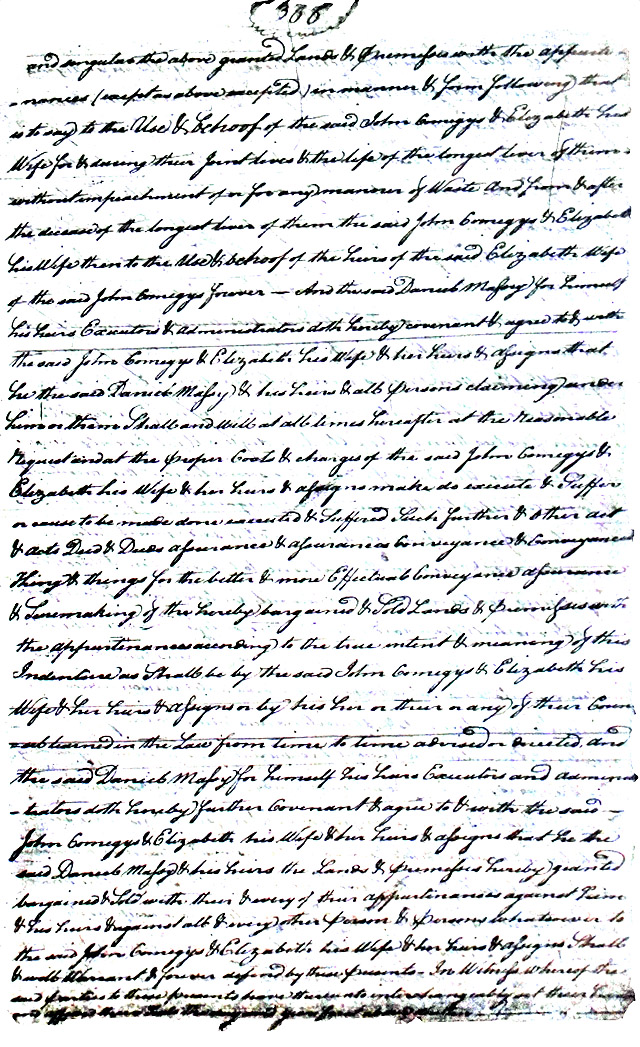 388
and singular the above granted Lands & Premisses with the appurte-
-nances (except as above excepted) in manner & form following that
is to say to the Use & Behoof of the said John Comegys & Elizabeth his
Wife for & during their Joint lives & the life of the longest liver of them
without impeachment of or for any manner of Waste and from & after
the decease of the longest liver of them the said John Comegys & Elizabeth
his Wife then to the Use & behoof of the heirs of the said Elizabeth Wife
of the said John Comegys forever — And the said Daniel Massy for himself
his heirs Executors & administrators doth hereby covenant & agree to & with
the said John Comegys & Elizabeth his Wife & her heirs & assigns that
he the said Daniel Massy & his heirs & all Persons claiming under
him or them Shall and will at all times hereafter at the Reasonable
Request and at the proper Costs & charges of the said John Comegys &
Elizabeth his Wife & her heirs & assigns make do execute & Suffer
or cause to be made done executed & Suffered Such further & other act
& acts Deed & Deeds assurance & assurances Conveyance & Conveyances
Thing & things for the better & more Effectual Conveyance assurance
& Suremaking of the hereby bargained & Sold Lands & Premisses with
the appurtinances according to the true intent & meaning of this
Indenture as Shall be by the said John Comegys & Elizabeth his
Wife & her heirs & assigns or by his her or their or any of their Coun
learned in the Law from time to time advised or directed, and
the said Daniel Massy for himself his heirs Executors and adminis
-trators doth hereby further Covenant & agree to & with the said —
John Comegys & Elizabeth his Wife & her heirs & assigns that he the
said Daniel Massy & his heirs the Lands & Premisses hereby granted
bargained & Sold with their & every of their appurtinances against him
& his heirs & against all & every other Person & Persons whatsoever to
the said John Comegys & Elizabeth his Wife & her heirs & assigns Shall
& will Warrant & forever defend by these Presents. In Witness whereof the
said parties to these presents have hereunto interchangeably set their hands
and affixed their Seals the day and year first above written